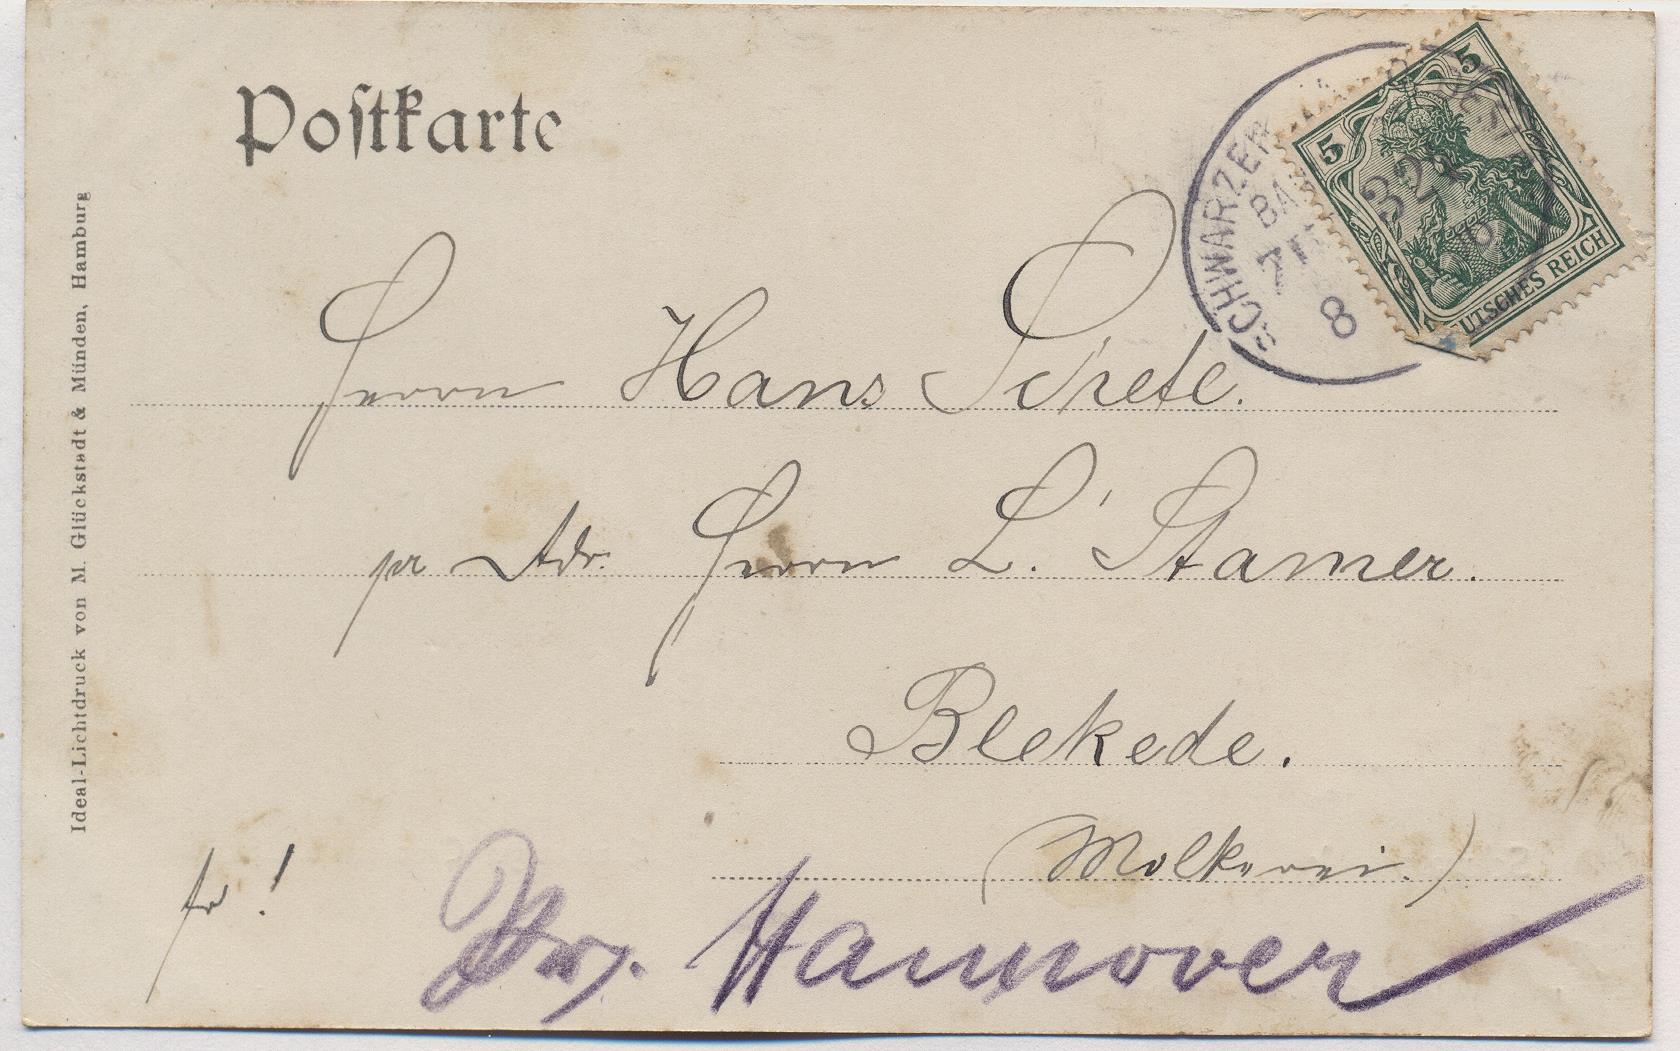 Postkarte
Ideal-Lichtdruck von M. Glückstadt & Münden, Hamburg
5 5
DEUTSCHES REICH
SCHWARZEN
BA
8
Herrn Hans Schele.
pr Adr. Herrn L. Stamer.
Blekede.
(Molkerei.)
fr!
Prov. Hannover